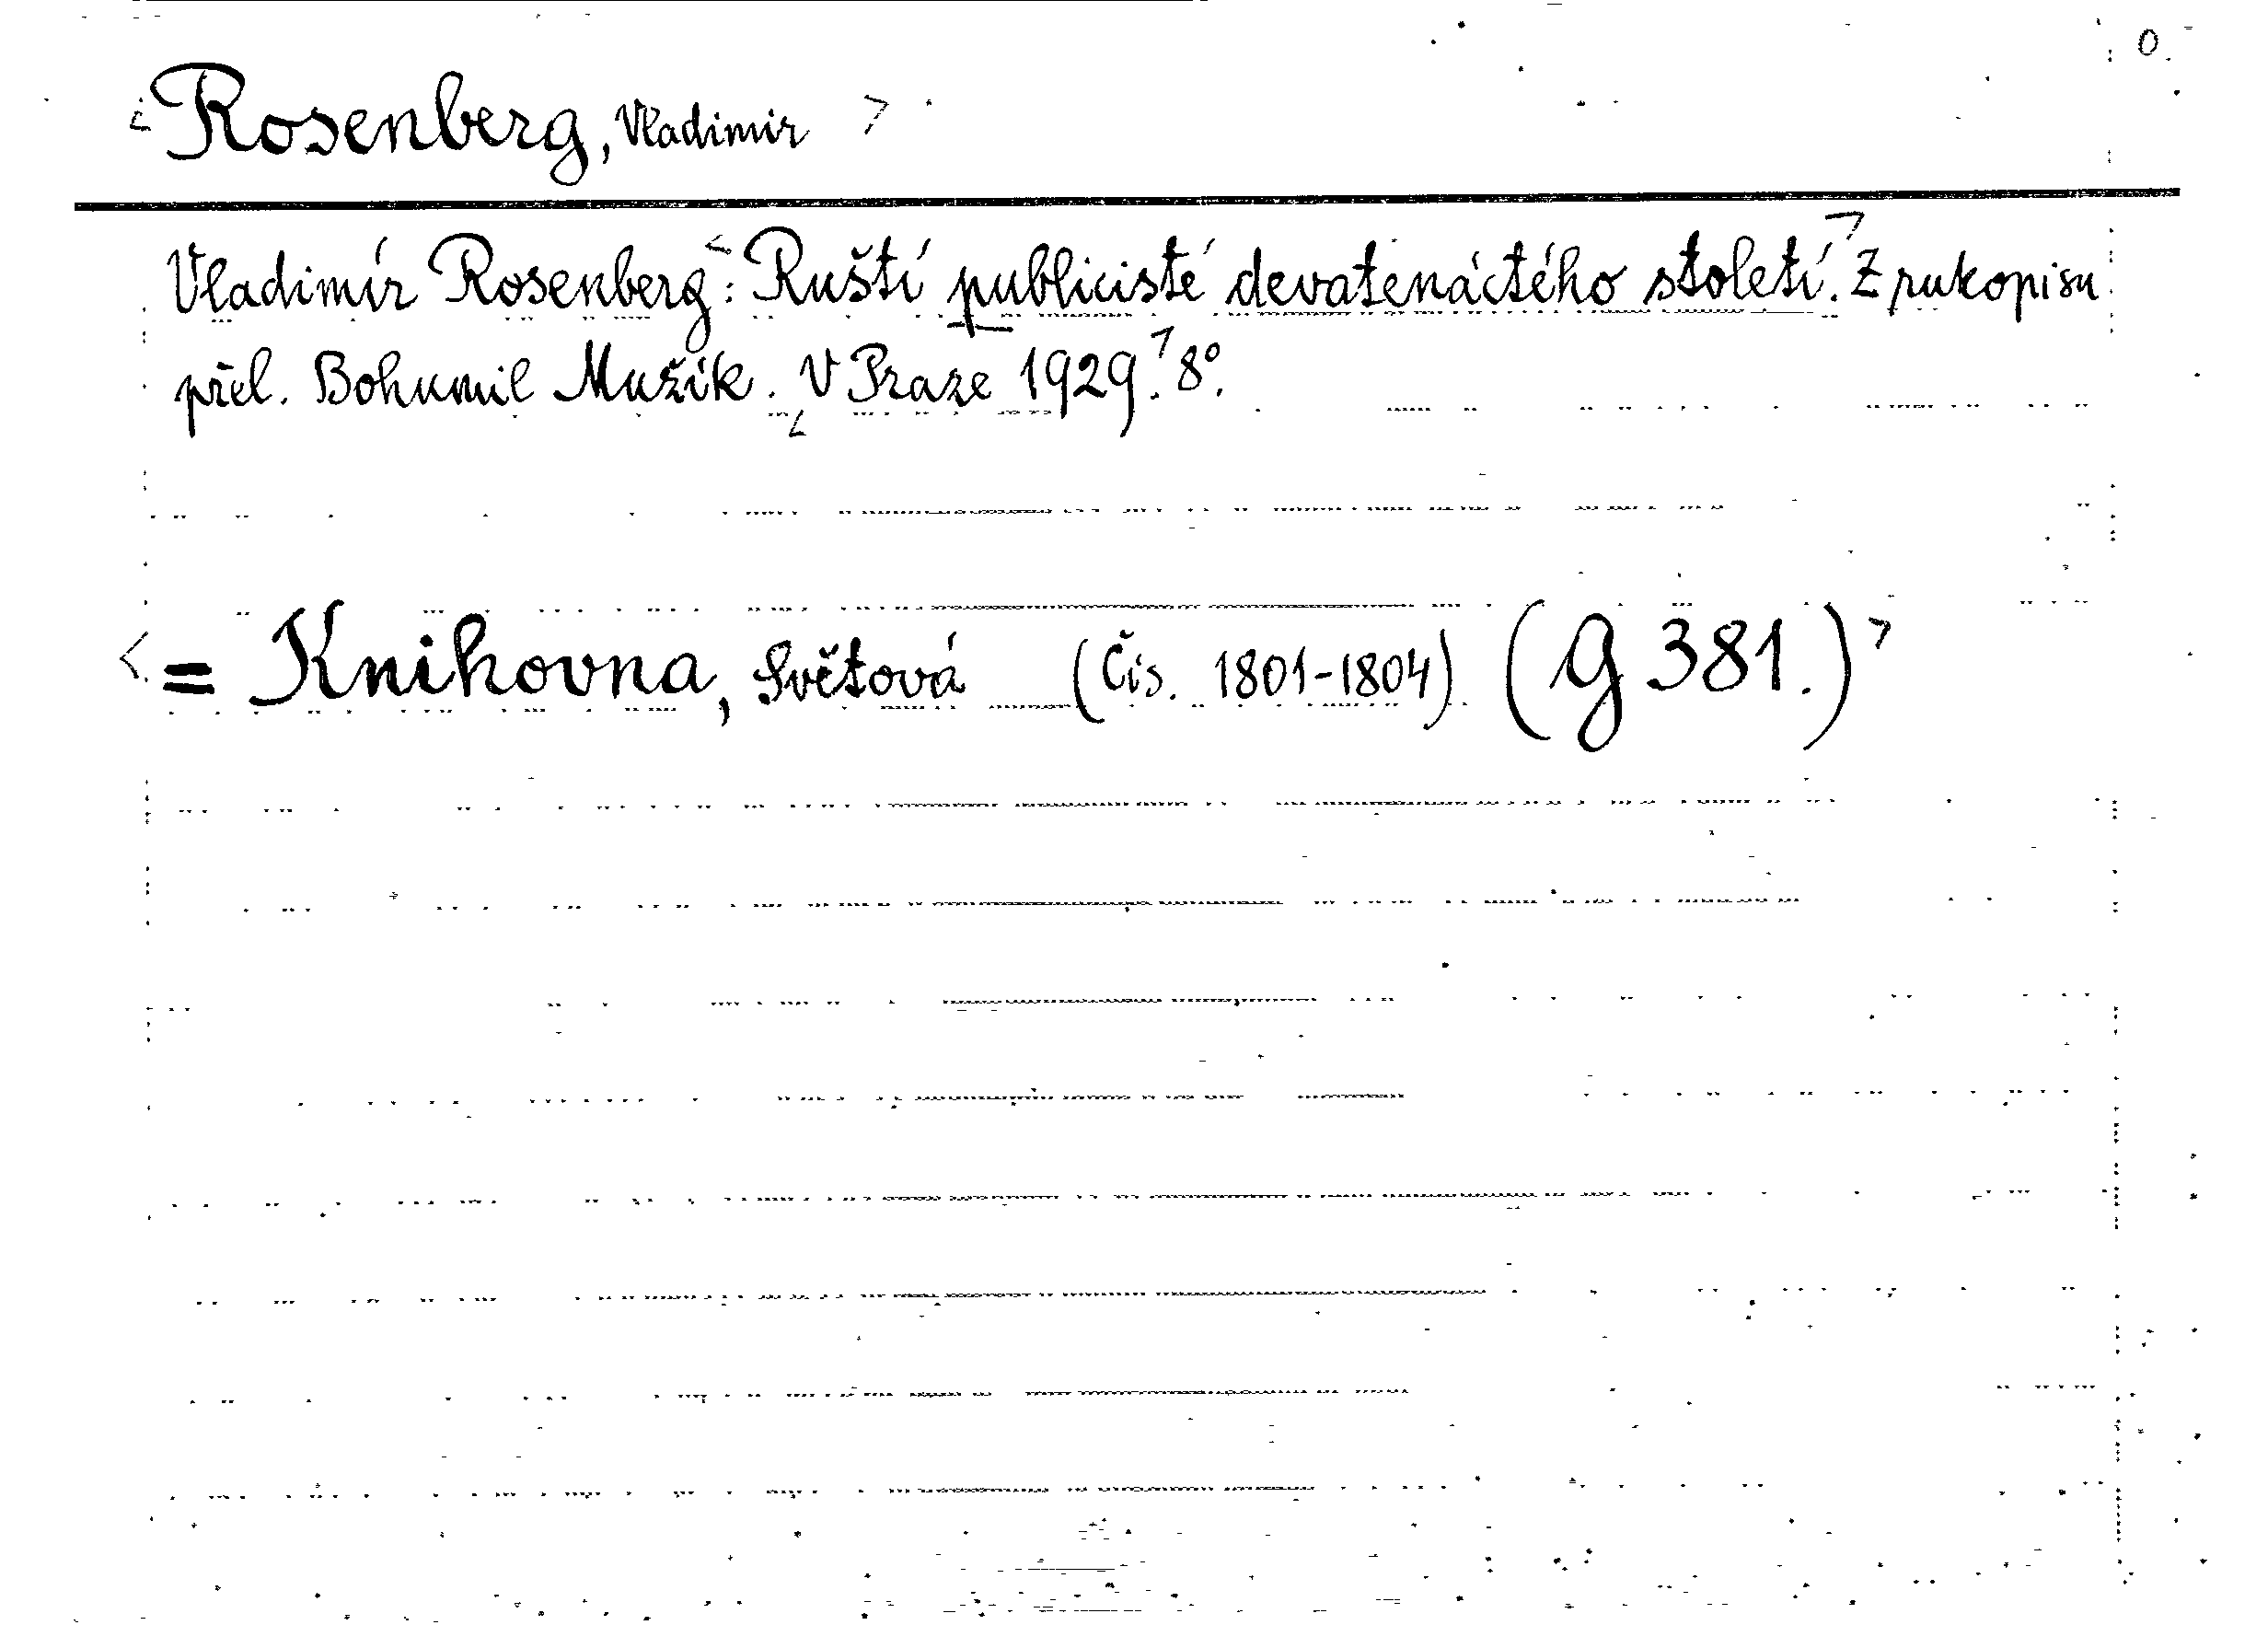 <Rosenberg, Vladimir> 0.
Vladimír Rosenberg<: Ruští publicisté devatenáctého století.> Z rukopisu
přel. Bohumil Mužík. <V Praze 1929.> 8°.
<= Knihovna, Světová (Čís. 1801-1804) (G 381.)>